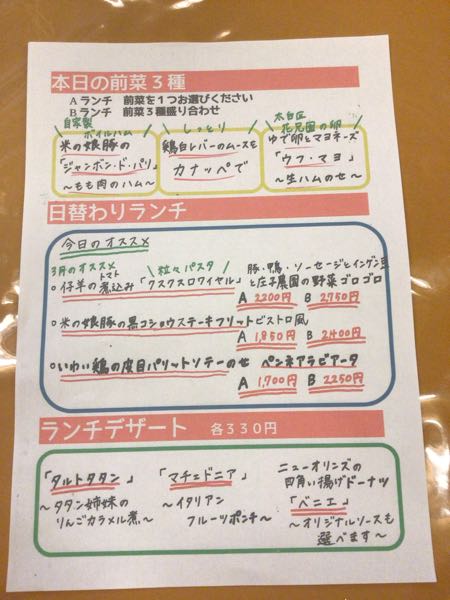 本日の前菜３種
Ａランチ　前菜を１つお選びください
Ｂランチ　前菜３種盛り合わせ
自家製
ボイルハム
米の娘豚の
「ジャンボン・ド・パリ」
～もも肉のハム～
しっとり
鶏白レバーのムースを
カナッペで
太白区
花兄園の卵
ゆで卵とマヨネーズ
「ウフ・マヨ」
～生ハムのせ～
日替わりランチ
今日のオススメ
3月のオススメ
粒々パスタ
○仔羊のトマト煮込み「クスクスロワイヤル」
豚・鴨・ソーセージとインゲン豆
と庄子農園の野菜ゴロゴロ
A 2200円 B 2750円
○米の娘豚の黒コショウステーキフリットビストロ風
A 1,850円 B 2400円
○いわい鶏の皮目パリットソテーのせ ペンネアラビアータ
A 1,700円 B 2250円
ランチデザート　各３３０円
「タルトタタン」
～タタン姉妹の
りんごカラメル煮～
「マチェドニア」
～イタリアン
フルーツポンチ～
ニューオリンズの
四角い揚げドーナツ
「ベニエ」
～オリジナルソースも
選べます～